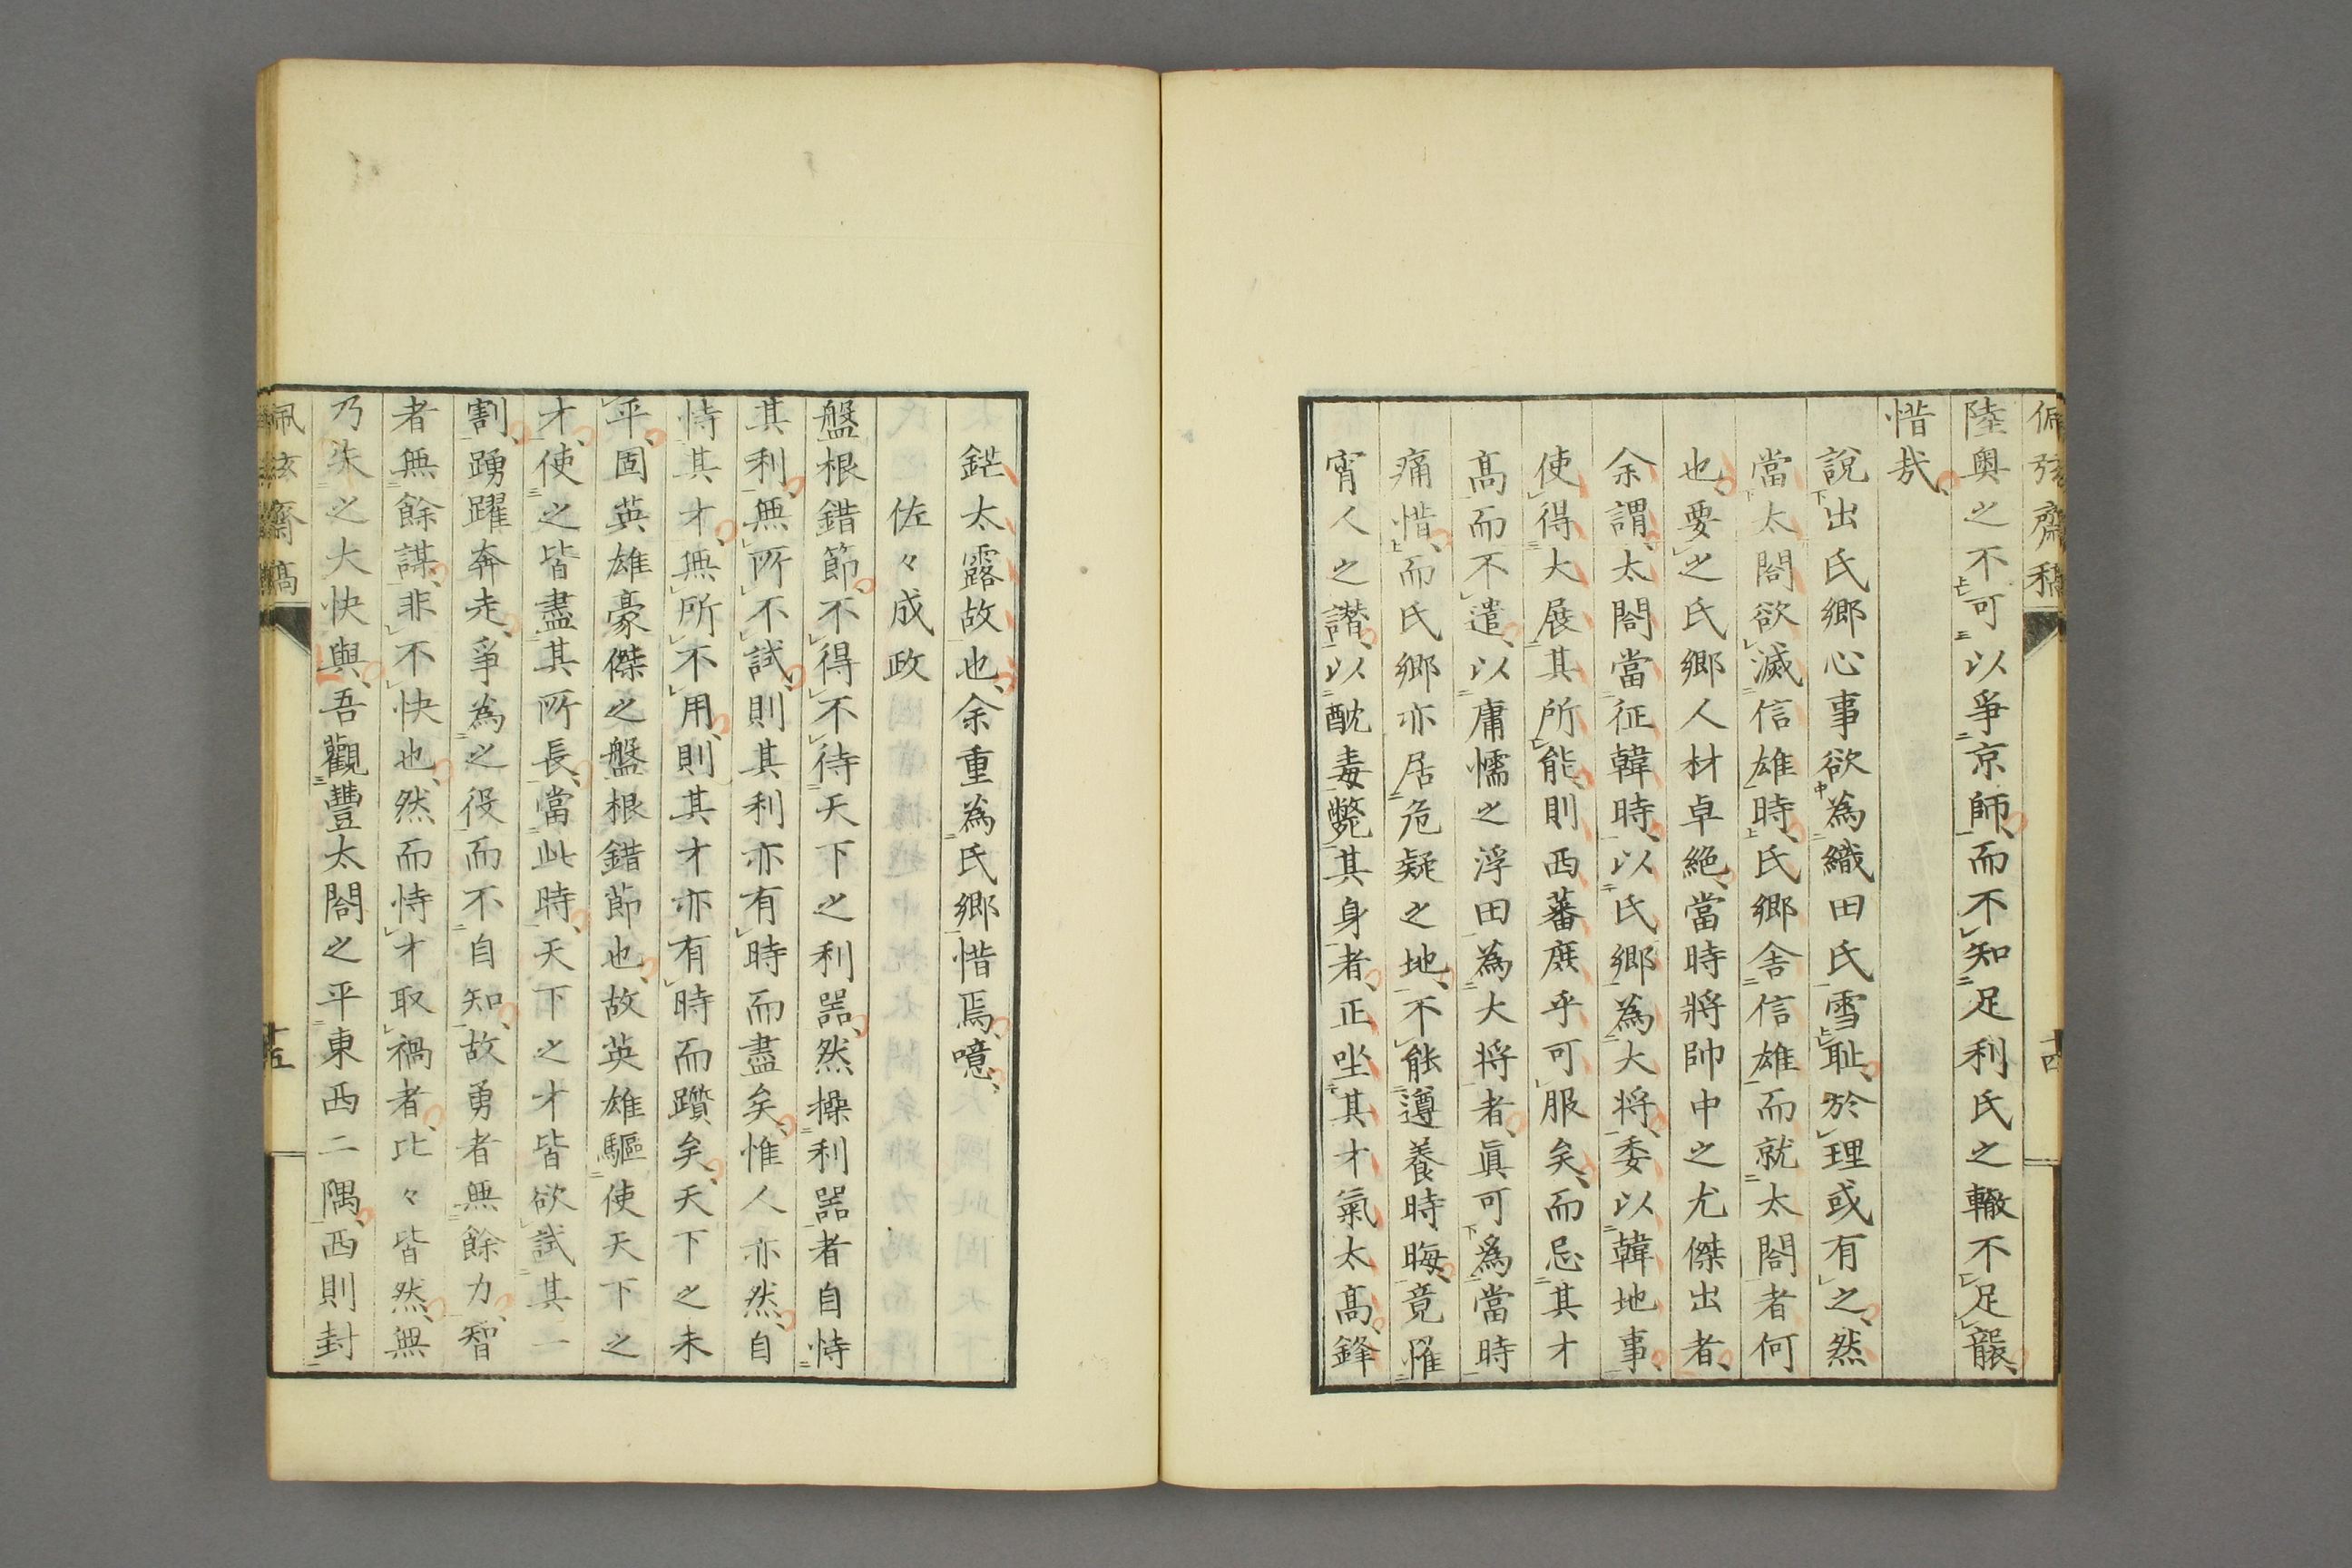 佩弦齋稿
十四
陸奧之不可以爭京師而不知足利氏之轍不足襲
惜哉
說出氏鄉心事欲為織田氏雪耻於理或有之然
當太閤欲滅信雄時氏鄉舍信雄而就太閤者何
也要之氏鄉人材卓絕當時將帥中之尤傑出者
余謂太閤當征韓時以氏鄉為大將委以韓地事
使得大展其所能則西蕃庶乎可服矣而忌其才
高而不遣以庸懦之浮田為大將者眞可爲當時
痛惜而氏鄉亦居危疑之地不能遵養時晦竟罹
宵人之譖以酖毒斃其身者正坐其才氣太高鋒
鋩太露故也余重為氏鄉惜焉噫
佐々成政
盤根錯節不得不待天下之利噐然操利噐者自恃
其利無所不試則其利亦有時而盡矣惟人亦然自
恃其才無所不用則其才亦有時而躓矣天下之未
平固英雄豪傑之盤根錯節也故英雄驅使天下之
才使之皆盡其所長當此時天下之才皆欲試其一
割踴躍奔走爭為之役而不自知故勇者無餘力智
者無餘謀非不快也然而恃才取禍者比々皆然無
乃柒之大快與吾觀豐太閤之平東西二隅西則封
佩弦齋稿
十五